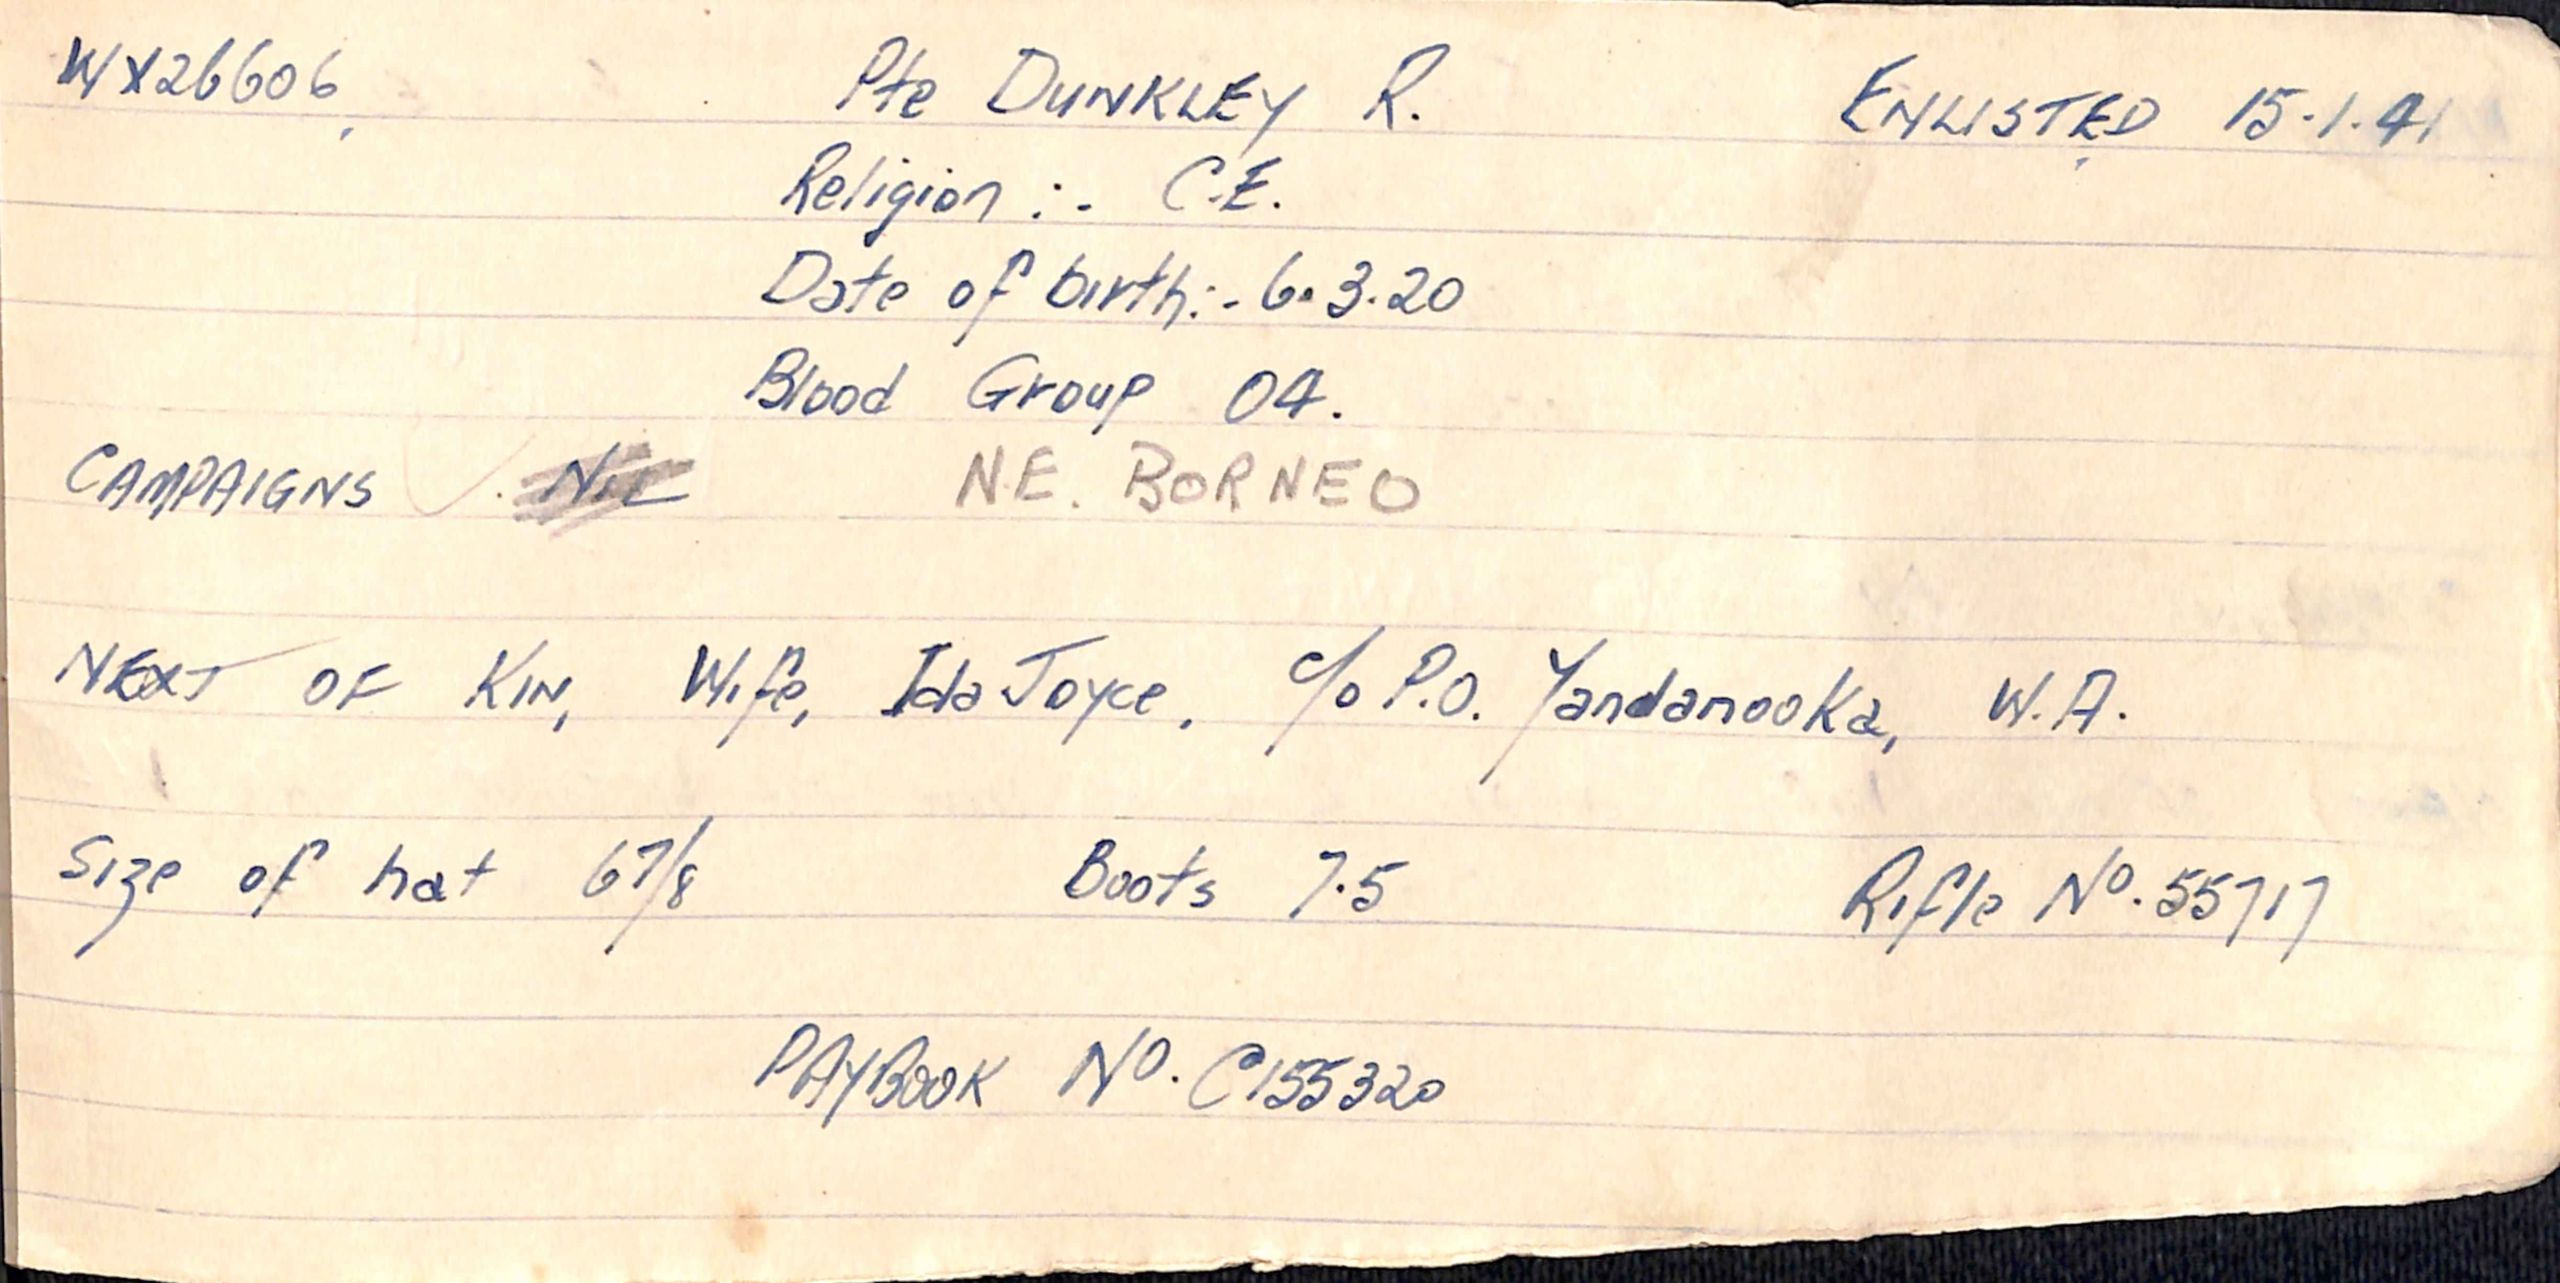 WX26606 Pte DUNKLEY R. ENLISTED 15.1.41
Religion :- C.E.
Date of birth:- 6.3.20
Blood Group O4.
CAMPAIGNS . NIL N.E. BORNEO
NEXT OF KIN, Wife, Ida Joyce, c/o P.O. Yandanooka, W.A.
Size of hat 6 7/8 Boots 7.5 Rifle No. 55717
PAYBOOK No. C155320